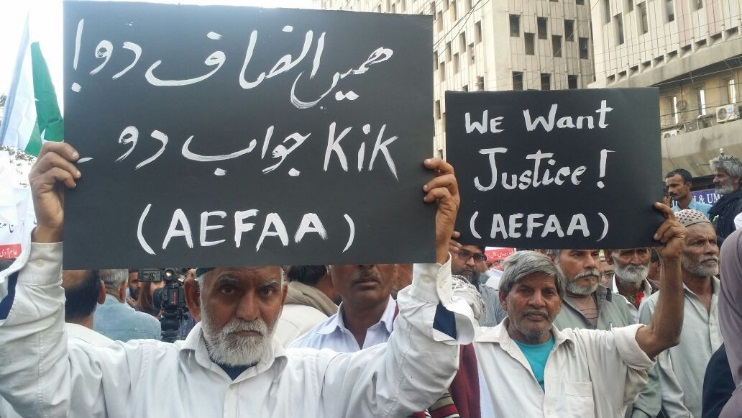 ہمیں انصاف دو!
Kik جواب دو ۔
(AEFAA)
WE Want
Justice!
(AEFAA)